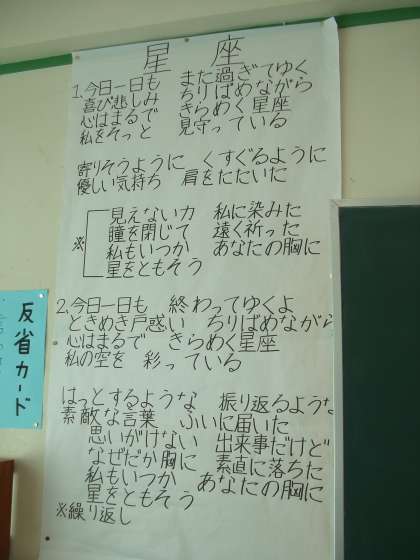 星座
1.今日一日も また過ぎてゆく
喜び悲しみ ちりばめながら
心はまるで きらめく星座
私をそっと 見守っている
寄りそうように くすぐるように
優しい気持ち 肩をたたいた
見えない力 私に染みた
瞳を閉じて 遠く祈った
※ 私もいつか あなたの胸に
星をともそう
2.今日一日も 終わってゆくよ
ときめき戸惑い ちりばめながら
心はまるで きらめく星座
私の空を 彩っている
はっとするような 振り返るような
素敵な言葉 ふいに届いた
思いがけない 出来事だけど
なぜだか胸に 素直に落ちた
私もいつか あなたの胸に
星をともそう
※繰り返し
反省カード